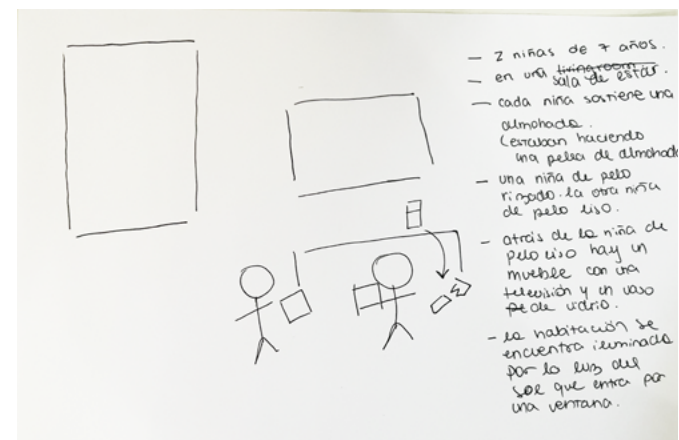 - 2 niñas de 7 años.
- en una livingroom
sala de estar.
- cada niña sostiene una
almohada.
(estaban haciendo
una pelea de almohada
- una niña de pelo
rizado. la otra niña
de pelo liso.
- atrás de la niña de
pelo liso hay un
mueble con una
televisión y un vaso
de vidrio.
- la habitación se
encuentra iluminada
por la luz del
sol que entra por
una ventana.